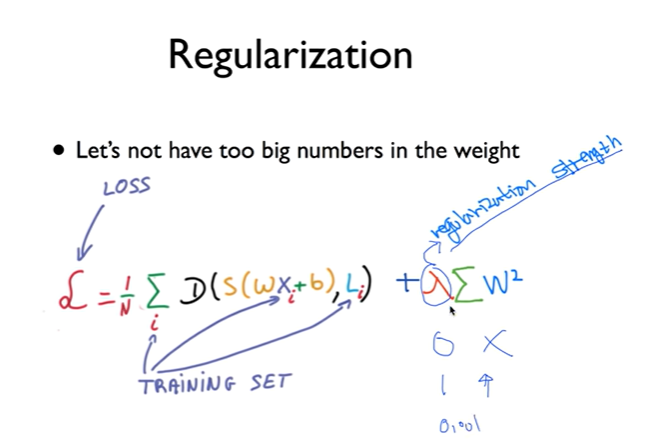 Regularization
• Let's not have too big numbers in the weight
LOSS
regularization strength
ℒ = 1/N Σ_i D(S(WX_i+b), L_i) + λ Σ W²
TRAINING SET
0 X
1 ↑
0.001